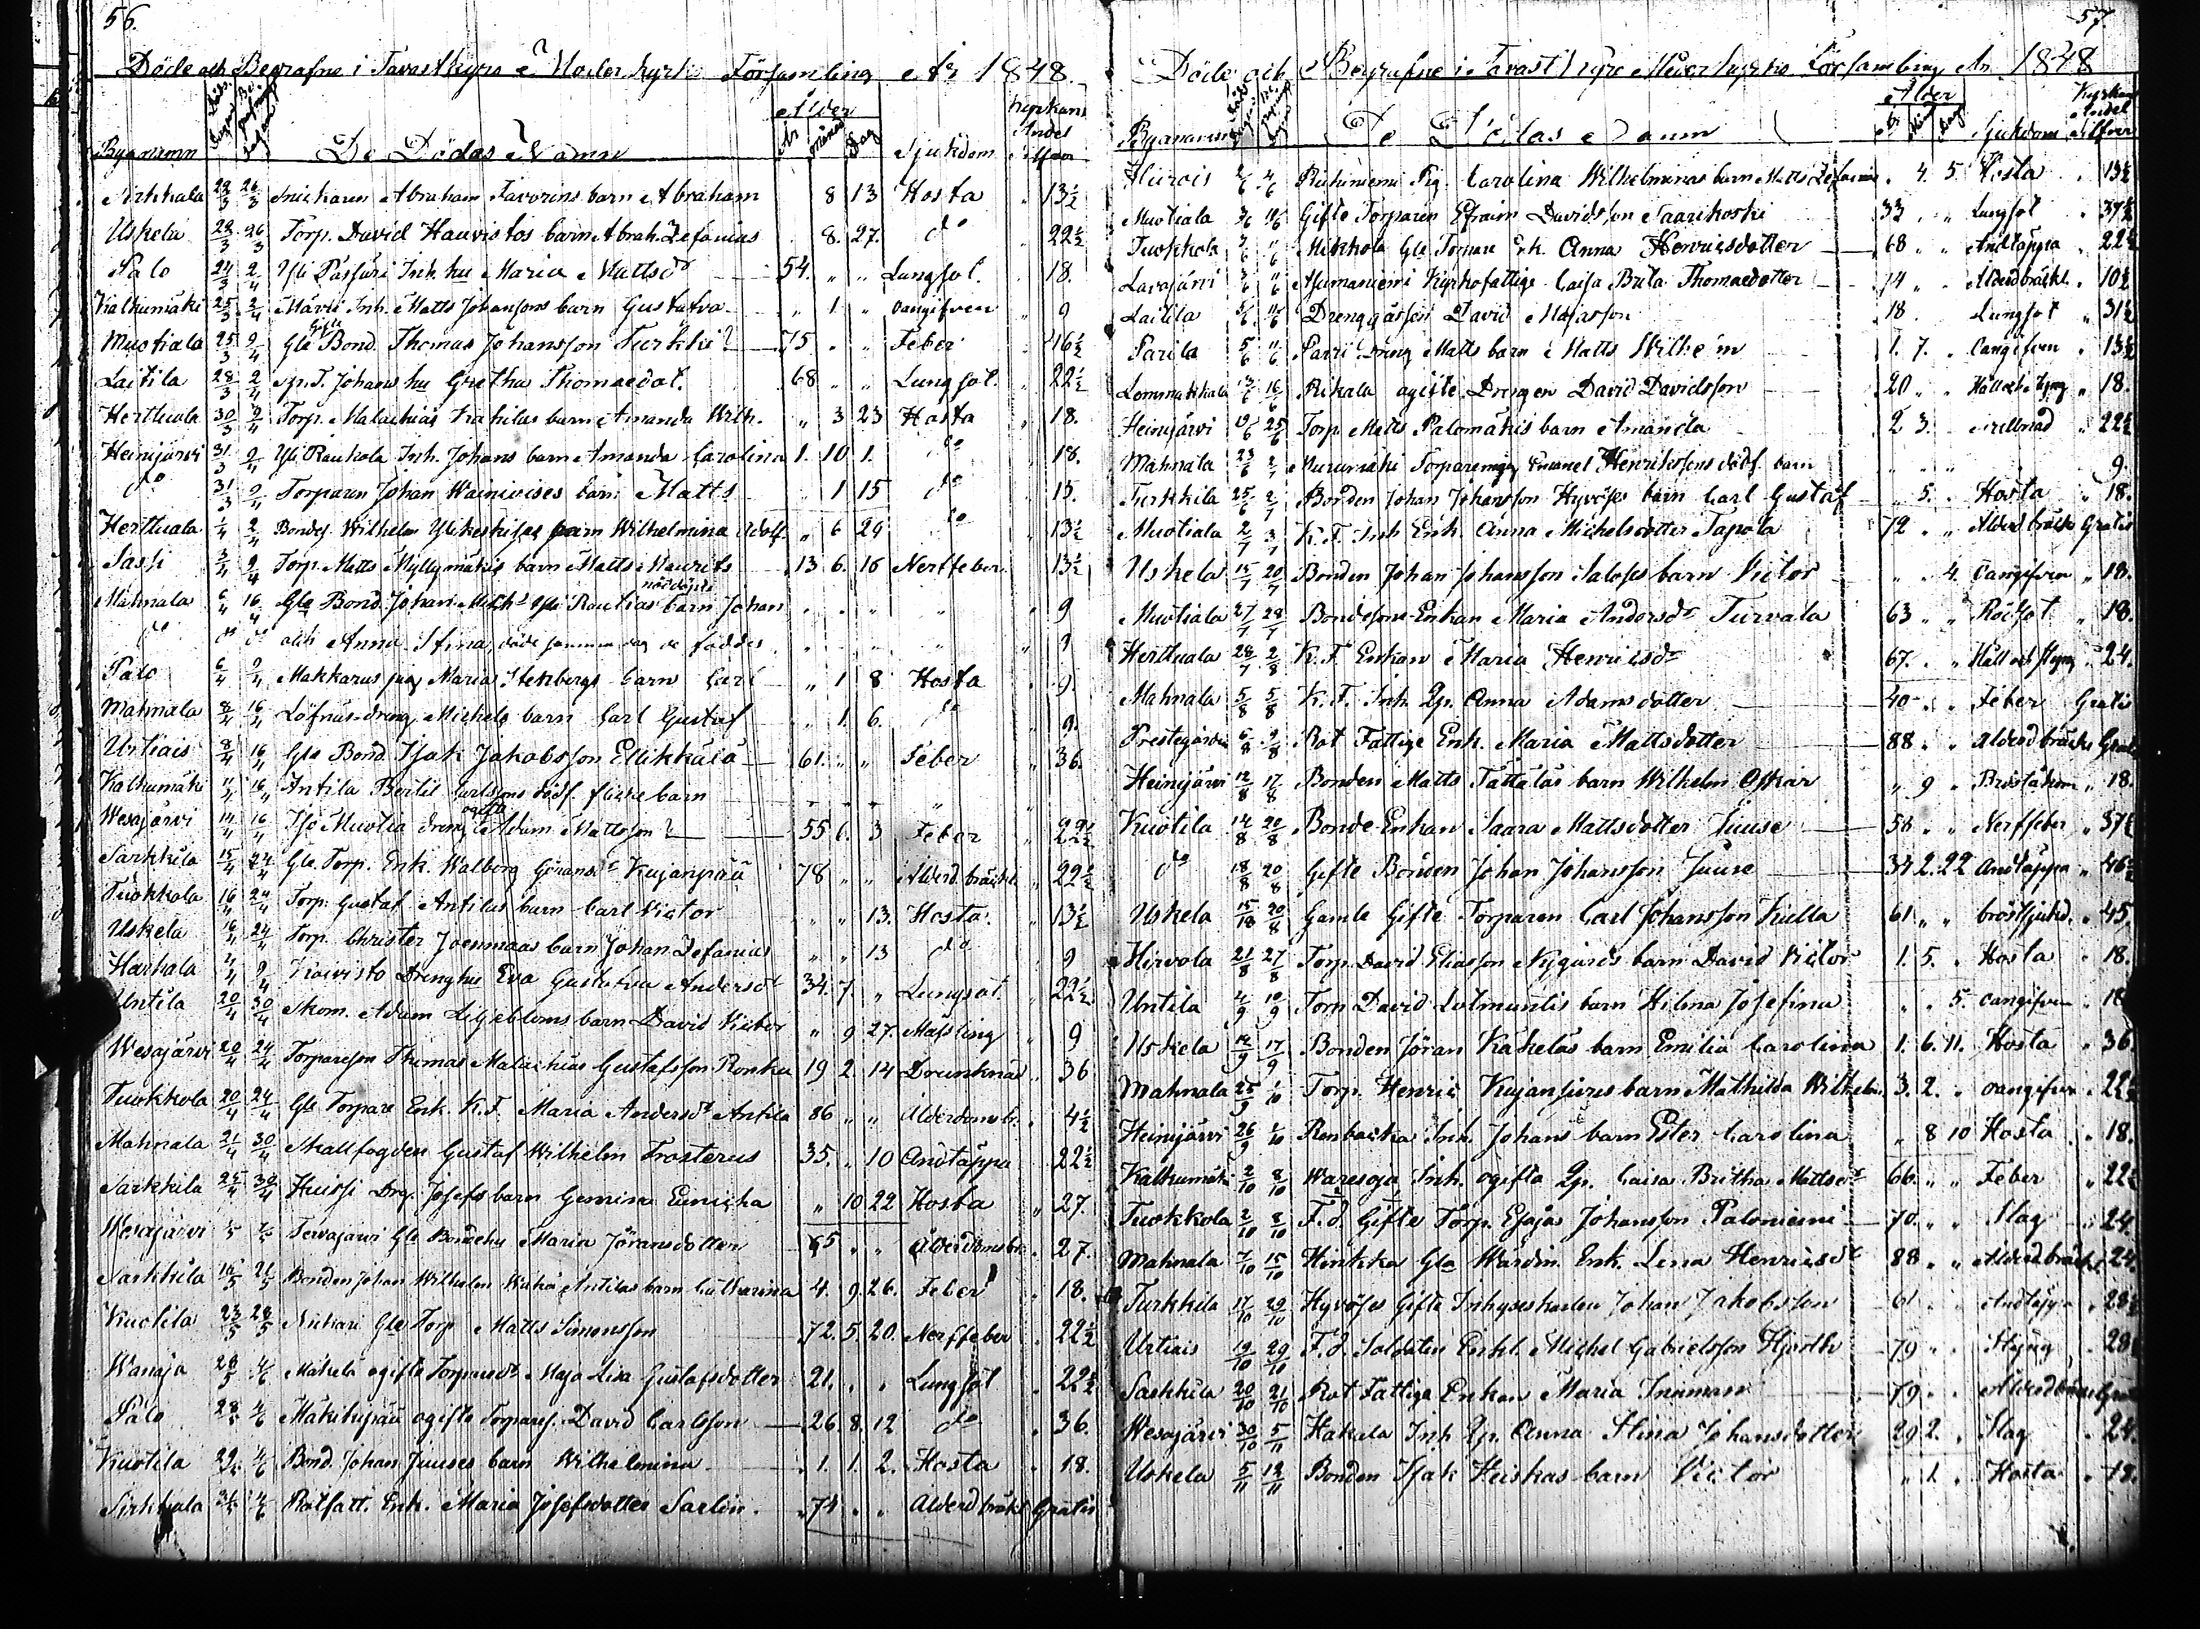 56.
Döde och Begrafne i Tavastkyro Moder kyrko Församling År 1848.
Byanamn Döds dagen Begrafnings dagen De Dödas Namn Ålder År månad Dag Sjukdom kyrkans Andel Silfver
Sirkkala 22/3 26/3 Snickaren Abraham Favorins barn Abraham 8 13 Hosta 13½
Uskela 22/3 26/3 Torp. David Hauvistos barn Abrah. Zefanias 8. 27. do 22½
Palo 24/3 2/4 Yli Pässäri Inh. hu Maria Mattsdr 54. " " Lungsot. 18.
Kalkunmäki 25/3 2/4 Inh. Matts Johanssons barn Gustafva " 1 " oangifven 9
Muotiala 25/3 9/4 Gle Gifte Bond. Thomas Johansson Turkki 75 " " Feber 46½
Laitila 28/3 2/4 Johans hu Gretha Thomaedot. 68 " " Lungsot. 22½
Herttuala 30/3 9/4 Torp. Malachias barn Amanda Wilh. " 3 23 Hosta 18.
Heinijärvi 31/3 9/4 Yli Raukola Inh. Johans barn Amanda Carolina 1. 10 1. do 18.
do 31/3 9/4 Torparen Johan Wainivises barn Matts 1 15 do 15.
Herttuala 1/4 2/4 Bonden Wilhelm barn Wilhelmina Adolf. " 6 29 do 13½
Sassi 3/4 9/4 Torp. Matts Myllymäkis barn Matts Maurits 13 6. 16 Nerffeber. 13½
Mahnala 6/4 16/4 Gla Bond. Johan Mich:s Yli Rautias nöddöpte barn Johan " " " " 9
do do do och Anna Stina, döde samma dag de föddes " " " " 9
Palo 6/4 9/4 Makkarus pig Maria Stenbergs barn Carl " 1 8 Hosta 9.
Mahnala 8/4 16/4 Löfnäs dräng Michels barn Carl Gustaf " 1. 6. do 9.
Urtiais 8/4 16/4 Gla Bond. Isak Jakobsson Ellikkälä 61. " " Feber 36.
Kalkunmäki 11/4 16/4 Antila Bertil Carlssons dödf. flicke barn " " " "
Wesajärvi 14/4 16/4 Iso Muotia dräng ogifta Adam Mattsson 55 6. 3 Feber 22½
Sarkkila 15/4 24/4 Gla Torp. Enk. Walborg Göransdr Kujanpää 78 " " Ålderd. bräckl. 22½
Tuokkola 16/4 24/4 Torp. Gustaf Antilas barn Carl Victor " " 13. Hosta. 13½
Uskela 16/4 24/4 Torp. Christer Joenmaas barn Johan Zefanias " " 13 do 9
Harhala 4/4 9/4 Koivisto Dränghu Eva Gustafva Andersdr 34. 7 " Lungsot. 22½
Untila 20/4 30/4 Skom. Adam Liljebloms barn David Victor " 9 27. Mässling 9
Wesajärvi 20/4 24/4 Torpareson Thomas Malachias Gustafsson Ronka 19 2. 14 Drunknad 36
Tuokkola 20/4 24/4 Gle Torpare Enk. K.F. Maria Andersdr Antila 86 " " Ålderdomsbr. 4½
Mahnala 21/4 30/4 Skallfogden Gustaf Wilhelm Frosterus 35. " 10 Andtäppa 22½
Sarkkila 25/4 30/4 Huissi Drg. Josefs barn Gemina Eunicka " 10 22 Hosta " 27.
Wesajärvi Tervajärvi Gle Bondehu Maria Jöransdotter 65 " " Ålderdomsbr. 27.
Sarkkila 16/5 21/5 Bonden Johan Wilhelm Wähä Antilas barn Catharina 4. 9. 26. Feber 18.
Kuotila 23/5 28/5 Gle Torp. Matts Simonsson 72. 5. 20. Nerffeber 22½
Wanaja 28/5 4/6 Mäkelä ogifte Torparedr Maja Lisa Gustafsdotter 21. " " Lungsot 22½
Palo 28/5 4/6 Mäkikyrää ogifte Torpares. David Carlsson 26 8. 12 do 36.
Kuotila 29/5 4/6 Bond. Johan Juuses barn Wilhelmina 1. 1. 2. Hosta 18.
Sirkkala 31/5 4/6 Rotfatt. Enk. Maria Josefsdotter Sarlin. 74 " " Ålderd bräckl Gratis
57.
Döde och Begrafne i Tavastkyro Moder kyrko Församling År 1848
Byanamn Döds dagen Begrafnings dagen De Dödas Namn Ålder År Månad dag Sjukdom Kyrkans Andel Silfver
2/6 4/6 Riihiniemi Pig. Carolina Wilhelminas barn Matts Zefanias 4. 5. Hosta 13½
Muotiala 3/6 11/6 Gifte Torparen Efraim Davidsson Saarikoski 33 " " Lungsot 37½
Tuokkola 3/6 11/6 Mikkola Gle Torpare Enk. Anna Henricsdotter 68 " " Andtäppa 22½
Lavajärvi 3/6 11/6 Kyrkofattige Caisa Brita Thomaedotter 74 " " Ålderdbräckl. 10½
Laitila 5/6 11/6 Drenggåsson David Mattsson 18 Lungsot 31½
Parila 5/6 11/6 Parri dräng Matts barn Matts Wilhelm 1. 7. " Oangifven 13½
Lemmakkala 13/6 16/6 Rikala ogifte Drengen David Davidsson 20 " " Håll och Styng 18.
Heinijärvi 19/6 25/6 Torp. Matts Palomäkis barn Amanda 2 3. " 22½
Mahnala 23/6 2/7 Nurumäki Torparemåg Emanuel Henrikssons dödf. barn " " " 9.
Turkkila 25/6 2/7 Bonden Johan Johansson Hyvöses barn Carl Gustaf " 5. " Hosta 18.
Muotiala 2/7 3/7 K.F. Inh Enk. Anna Michelsdotter Tapola 72 " " Ålderd bräck Gratis
Uskela 15/7 20/7 Bonden Johan Johansson Saloses barn Victor " " 4. Oangifven 18.
Muotiala 27/7 28/7 Bondesone Enkan Maria Andersdr Turvala 63 " " Rödsot 18.
Herttuala 28/7 2/8 K.F. Enkan Maria Henricsdr 67. " " Håll och styng 24.
Mahnala 5/8 5/8 K.F. Inh. Qp. Anna Adamsdotter 40 " " Feber Gratis
Prestegården 6/8 9/8 Rot Fattige Enk. Maria Mattsdotter 88 " " Ålderd bräckl Gratis
Heinijärvi 12/8 17/8 Bonden Matts Tättäläs barn Wilhelm Oskar " 9 " Bröståkom 18.
Kuotila 14/8 20/8 Bonde Enkan Saara Mattsdotter Juuse 58 " " Nerffeber 37½
do 18/8 20/8 Gifte Bonden Johan Johansson Juuse 34 2. 22 Andtäppa 46½
Uskela 15/8 20/8 Gamle Gifte Torparen Carl Johansson Kulla 61 " " bröstsjukd. 45.
Hirvola 21/8 27/8 Torp. David Eliasson Nygårds barn David Victor 1. 5. " Hosta 18.
Untila 4/9 10/9 Torp David barn Hilma Josefina " " 5. oangifven 18
Uskela 14/9 17/9 Bonden Jöran Käkeläs barn Emilia Carolina 1. 6. 11. Hosta 36.
Mahnala 25/9 1/10 Torp. Henric Kujansuus barn Mathilda Wilhelm. 3. 2. " oangifven 22½
Heinijärvi 26/9 1/10 Renbacka Inh. Johans barn Ester Carolina " 8 10 Hosta 18.
Kalkunmäki 2/10 8/10 Waresoja Inh. ogifta Qp. Caisa Britha Mattsdr 66. " " Feber 22½
Tuokkola 2/10 8/10 F.d. Gifte Torp. Esajas Johansson Paloniemi 70. " " Slag 24.
Mahnala 7/10 15/10 Hinkka Gla Wärdin Enk. Lena Henricsdr 88 " " Ålderdbräckl 24.
Turkkila 17/10 29/10 Hyvöses Gifte Inhyseskarlen Johan Jakobsson 61 " " Andtäppa 28½
Urtiais 19/10 29/10 F.d. Soldaten Enkl. Michel Gabrielsson Hjorth 79 " " Styng 28
Sarkkila 20/10 21/10 Rot Fattiga Enkan Maria 79 " " Ålderdbräckl Gratis
Wesajärvi 30/10 5/11 Hakala Inh Qp. Anna Stina Johansdotter 29 2. " Slag 24.
Uskela 5/11 12/11 Bonden Isak Heiskas barn Victor " 1. " Hosta 18.